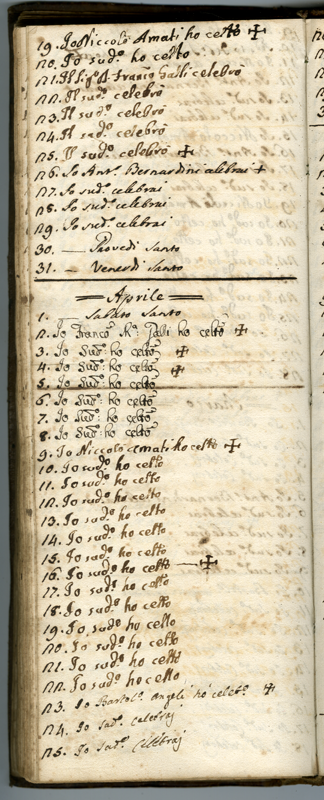 19. Io Niccolò Amati ho cettō ✠
20. Io sud.º ho cetto
21. Il Sig.r A. Franc.º Galli celebrò
22. Il sud.º celebrò
23. Il sud.º celebrò
24. Il sud.º celebrò
25. Il sud.º celebrò ✠
26. Io Ant.º Bernardini celebrai +
27. Io sud.º celebrai
28. Io sud.º celebrai
29. Io sud.º celebrai
30. — Giovedi Santo
31. — Venerdi Santo
= Aprile =
1. — Sabato Santo
2. Io Franc.º M.ª ho celtō ✠
3. Io Sud.º ho celtō ✠
4. Io Sud.º ho celtō ✠
5. Io Sud.º ho celtō
6. Io Sud.º ho celtō
7. Io Sud.º ho celtō
8. Io Sud.º ho celtō
9. Io Niccolò Amati ho cettō ✠
10. Io sud.º ho cetto
11. Io sud.º ho cetto
12. Io sud.º ho cetto
13. Io sud.º ho cetto
14. Io sud.º ho cetto
15. Io sud.º ho cetto
16. Io sud.º ho cetto — ✠
17. Io sud.º ho cetto
18. Io sud.º ho cetto
19. Io sud.º ho cetto
20. Io sud.º ho cetto
21. Io sud.º ho cetto
22. Io sud.º ho cetto
23. Io Bartol.º Angeli ho celeb.º ✠
24. Io sud.º celebraj
25. Io sud.º celebraj